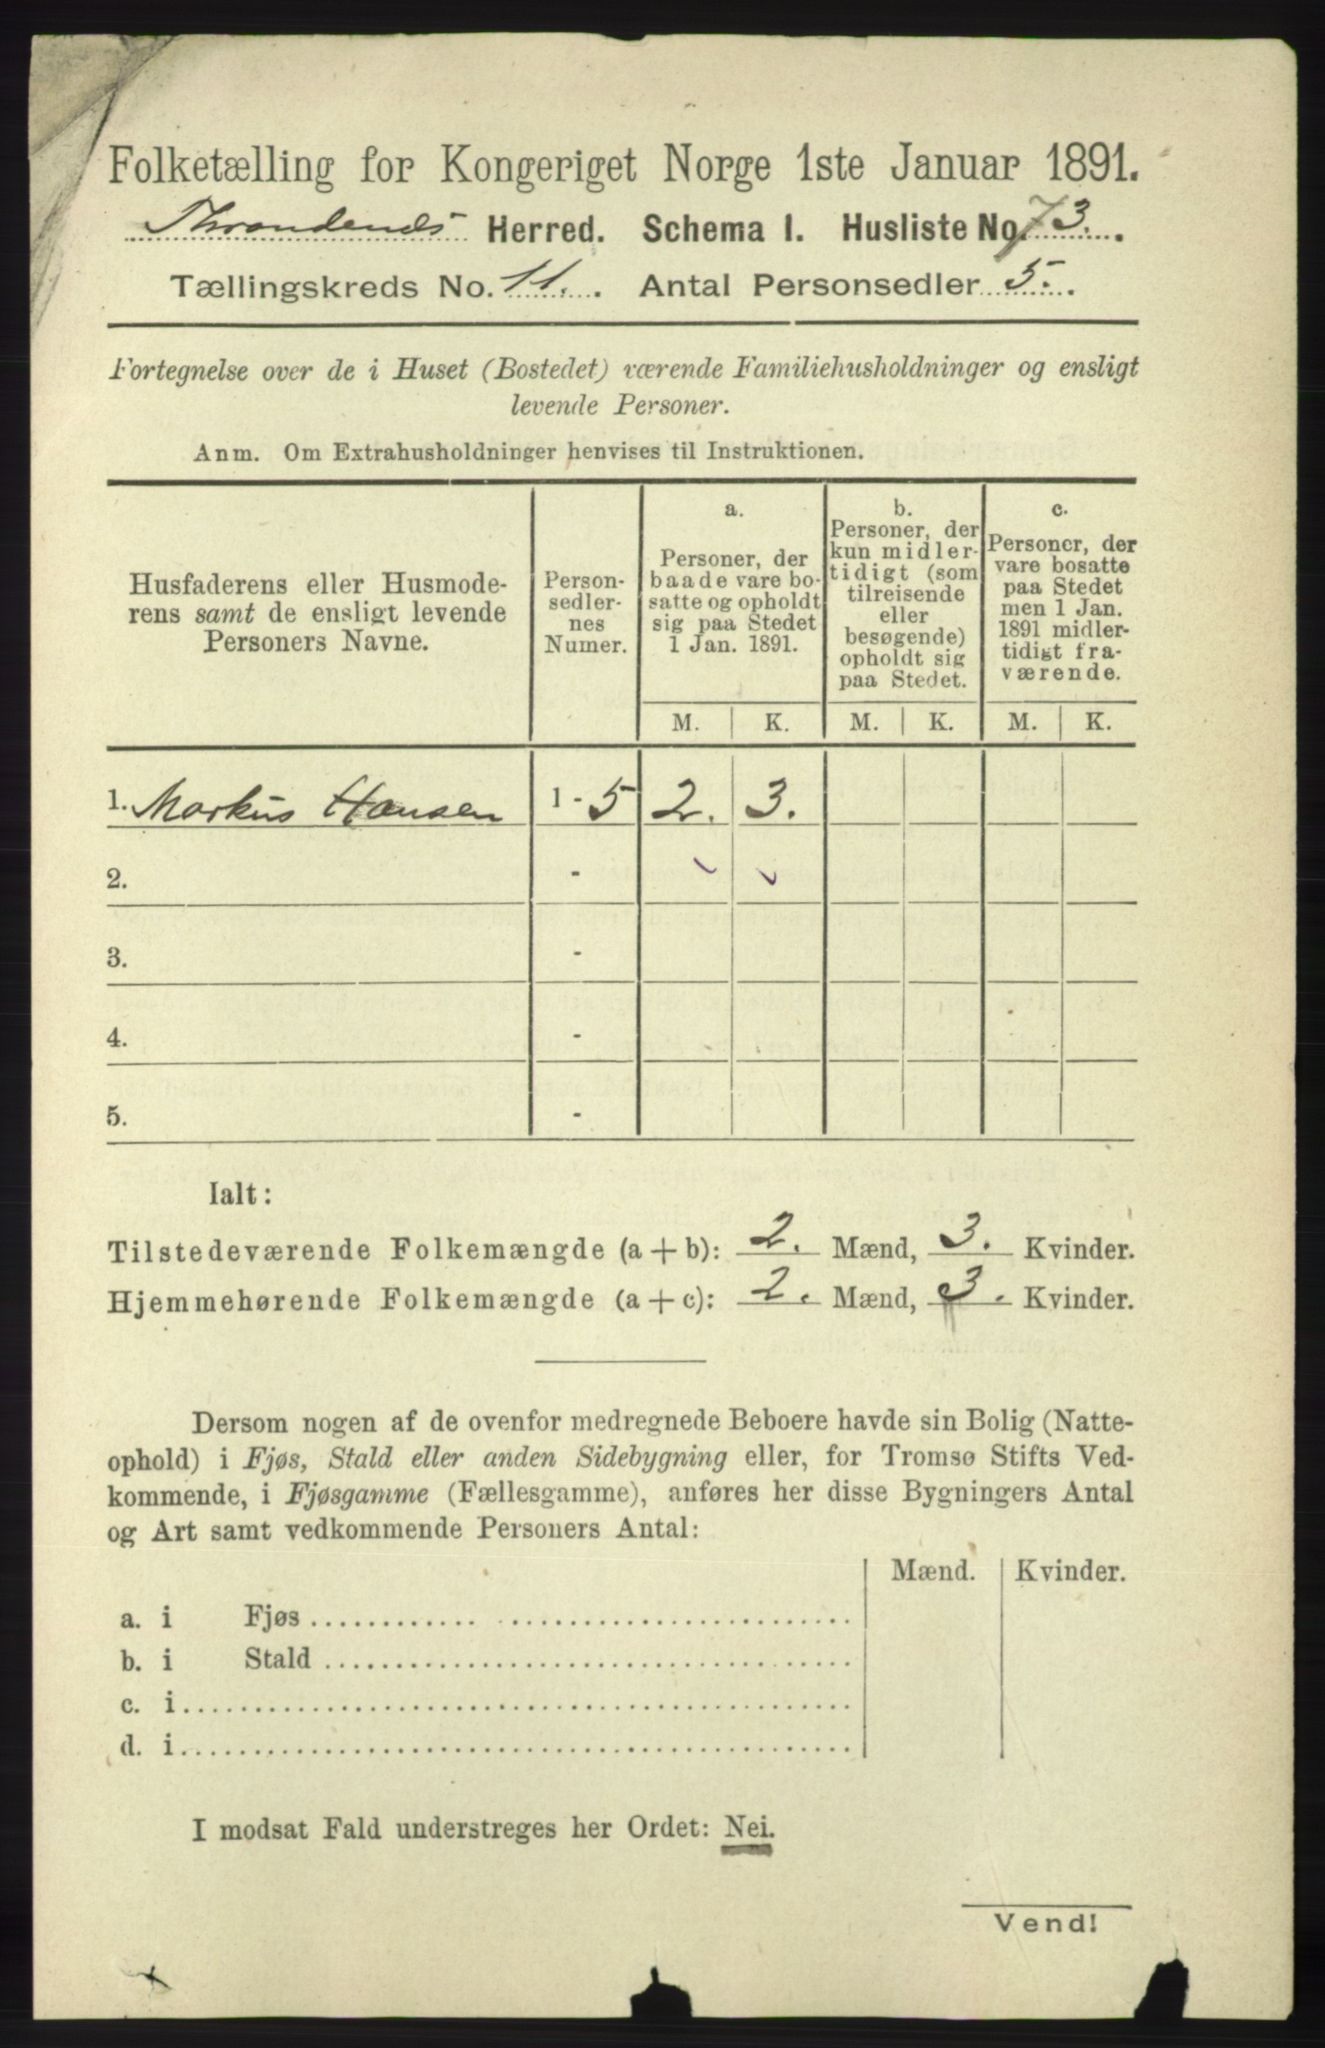 Folketælling for Kongeriget Norge 1ste Januar 1891.
Throndenæs Herred. Schema I. Husliste No. 73.
Tællingskreds No. 11. Antal Personsedler 5.
Fortegnelse over de i Huset (Bostedet) værende Familiehusholdninger og ensligt
levende Personer.
Anm. Om Extrahusholdninger henvises til Instruktionen.
Husfaderens eller Husmode-
rens samt de ensligt levende
Personers Navne.
Person-
sedler-
nes
Numer.
a.
Personer, der
baade vare bo-
satte og opholdt
sig paa Stedet
1 Jan. 1891.
b.
Personer, der
kun midler-
tidigt (som
tilreisende
eller
besøgende)
opholdt sig
paa Stedet.
c.
Personer, der
vare bosatte
paa Stedet
men 1 Jan.
1891 midler-
tidigt fra-
værende.
M. K. M. K. M. K.
1. Markus Hansen 1 - 5 2. 3.
2. -
3. -
4. -
5. -
Ialt:
Tilstedeværende Folkemængde (a + b): 2. Mænd, 3. Kvinder.
Hjemmehørende Folkemængde (a + c): 2. Mænd, 3. Kvinder.
Dersom nogen af de ovenfor medregnede Beboere havde sin Bolig (Natte-
ophold) i Fjøs, Stald eller anden Sidebygning eller, for Tromsø Stifts Ved-
kommende, i Fjøsgamme (Fællesgamme), anføres her disse Bygningers Antal
og Art samt vedkommende Personers Antal:
Mænd. Kvinder.
a. i Fjøs
b. i Stald
c. i
d. i
I modsat Fald understreges her Ordet: Nei.
Vend!